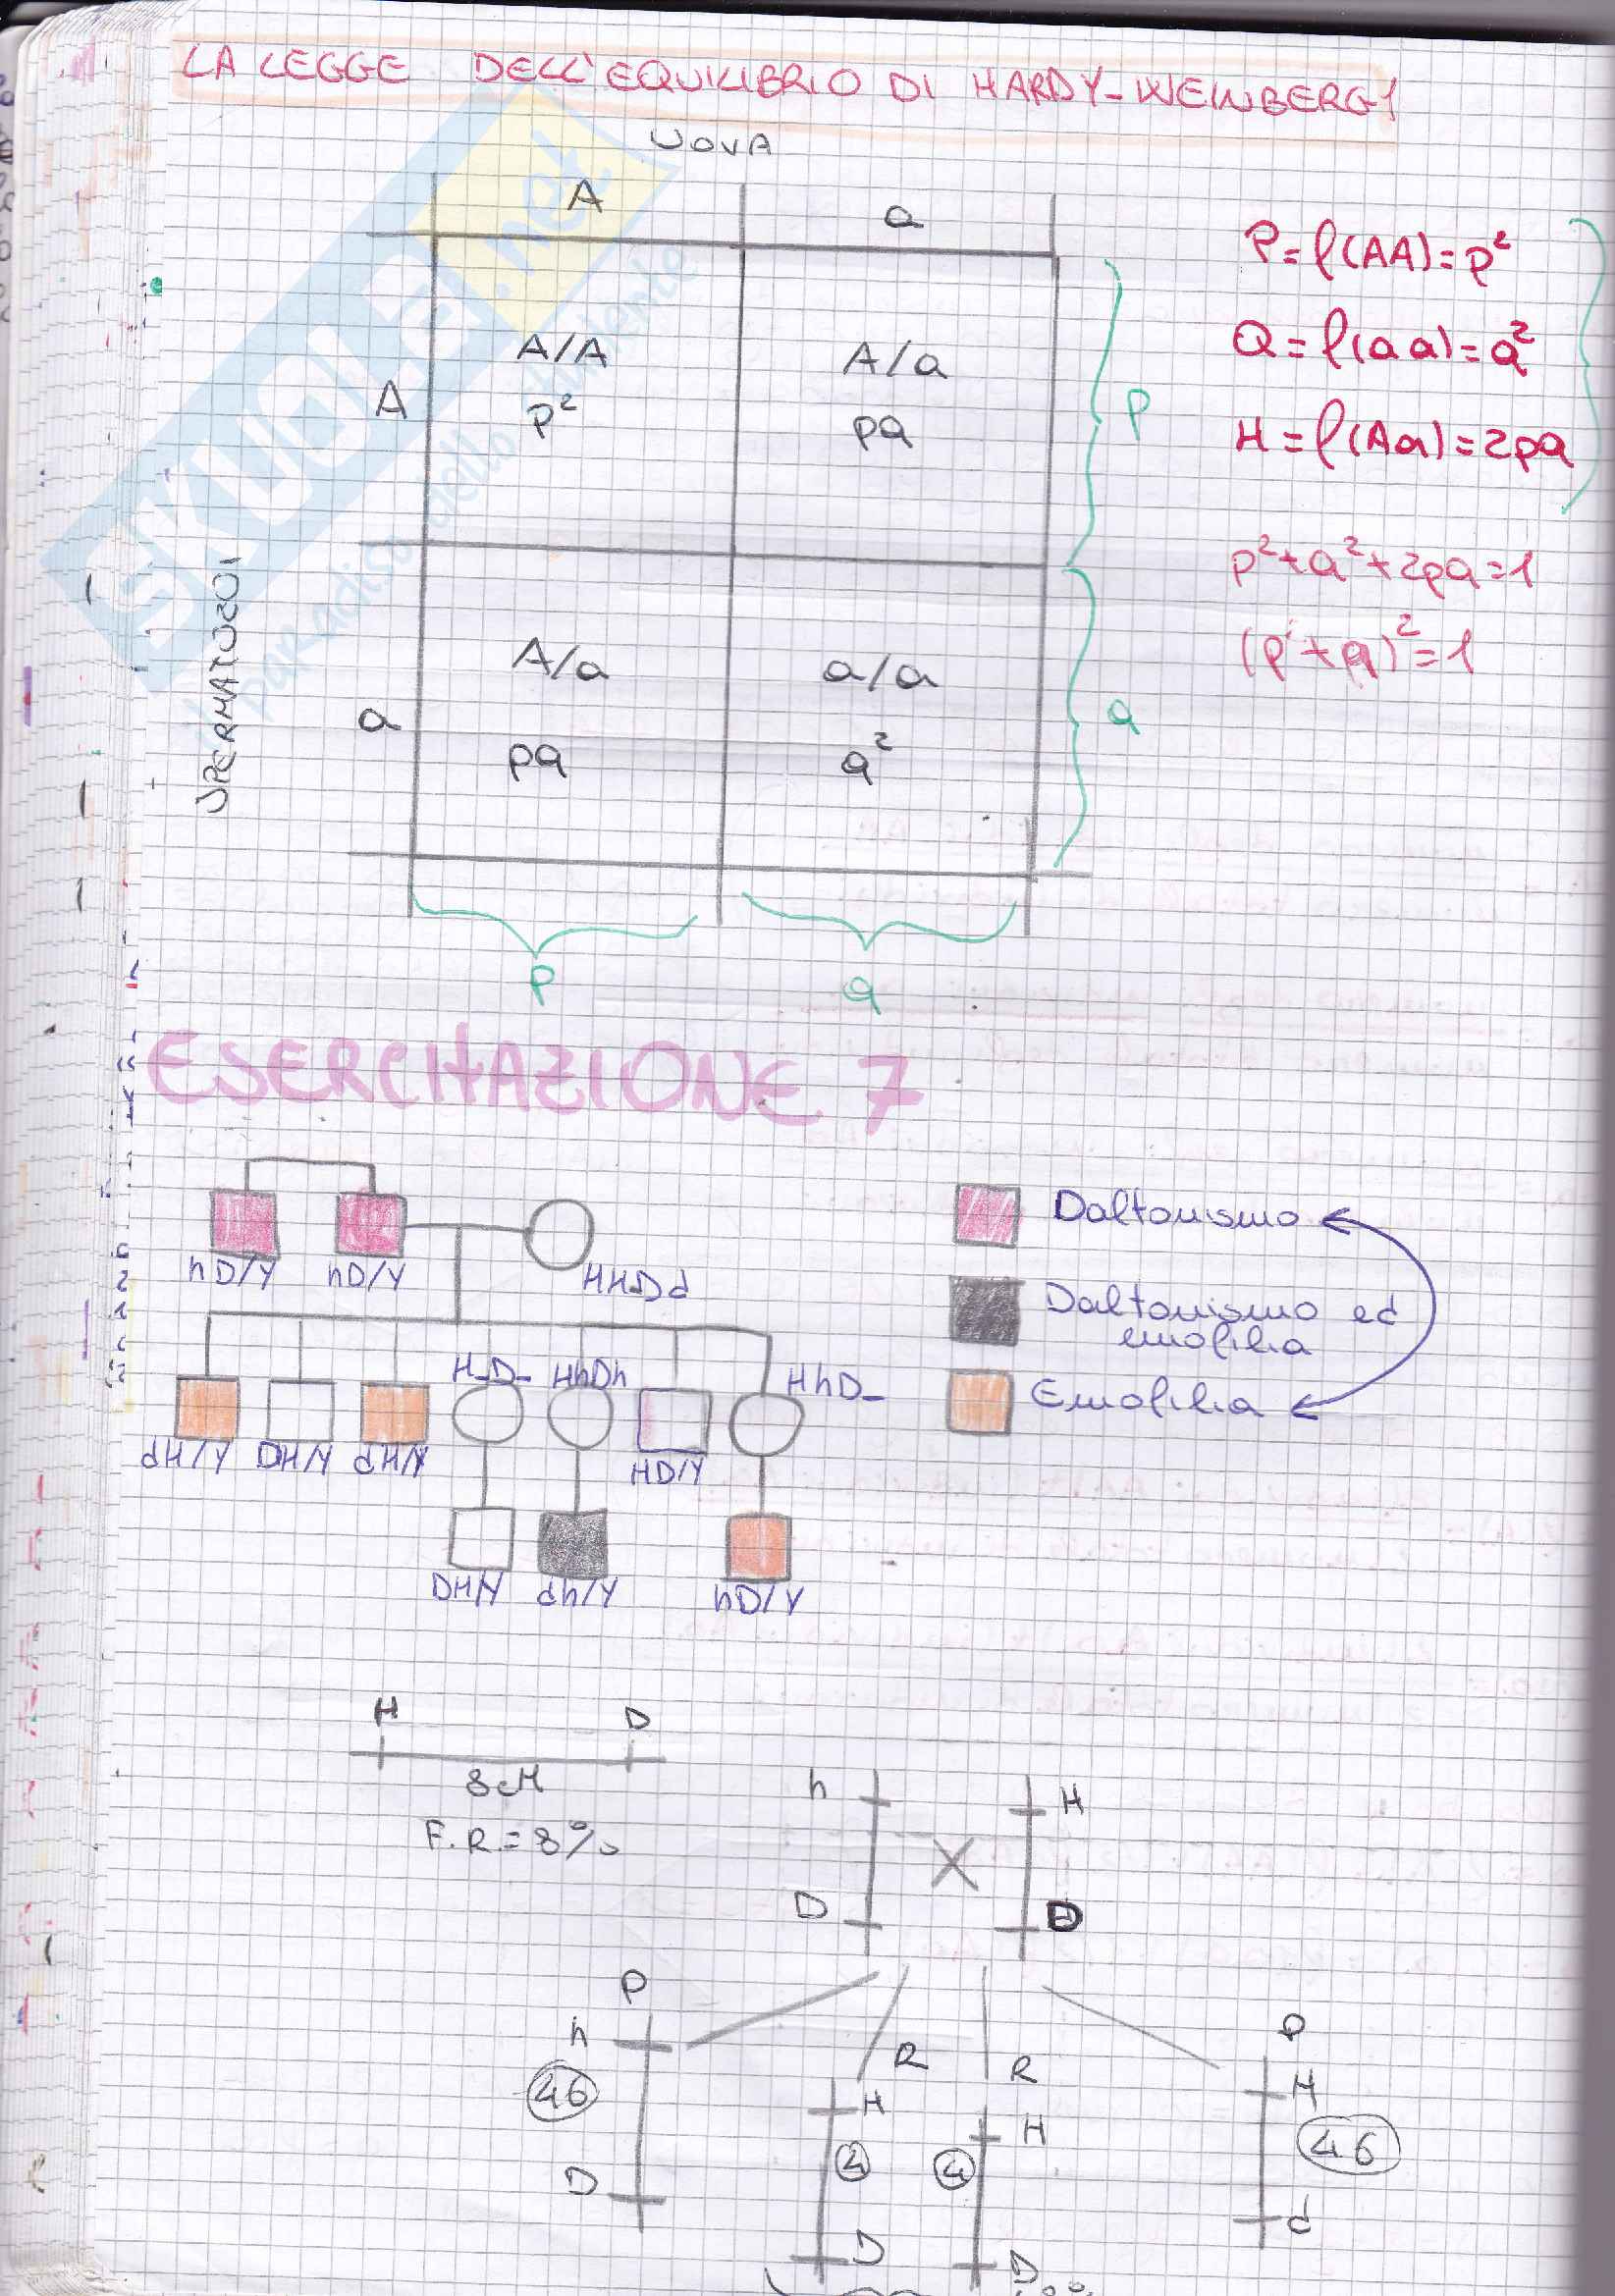 LA LEGGE DELL'EQUILIBRIO DI HARDY-WEINBERG
UOVA
A
a
P=f(AA)=p²
Q=f(aa)=q²
H=f(Aa)=2pq
p²+q²+2pq=1
(p+q)²=1
SPERMATOZOI
A
A/A
p²
A/a
pq
p
a
A/a
pq
a/a
q²
q
p
q
SKUOLA.net
il paradiso dello studente
ESERCITAZIONE 7
hD/Y
hD/Y
HHDd
Daltonismo
Daltonismo ed
emofilia
Emofilia
H_D_
HhDh
HhD_
dH/Y
DH/Y
dH/Y
HD/Y
DH/Y
dh/Y
hD/Y
H
D
8cM
F.R.=8%
h
H
D
D
P
h
46
D
R
H
4
D
R
H
4
D
P
H
46
d